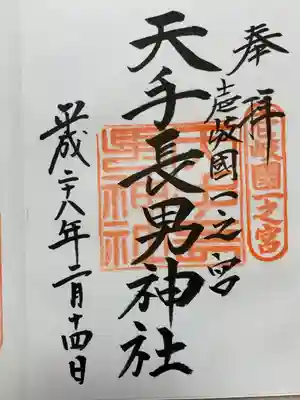 奉拝
壱岐國一之宮
天手長男神社
平成二十八年二月十四日
壱岐國一之宮